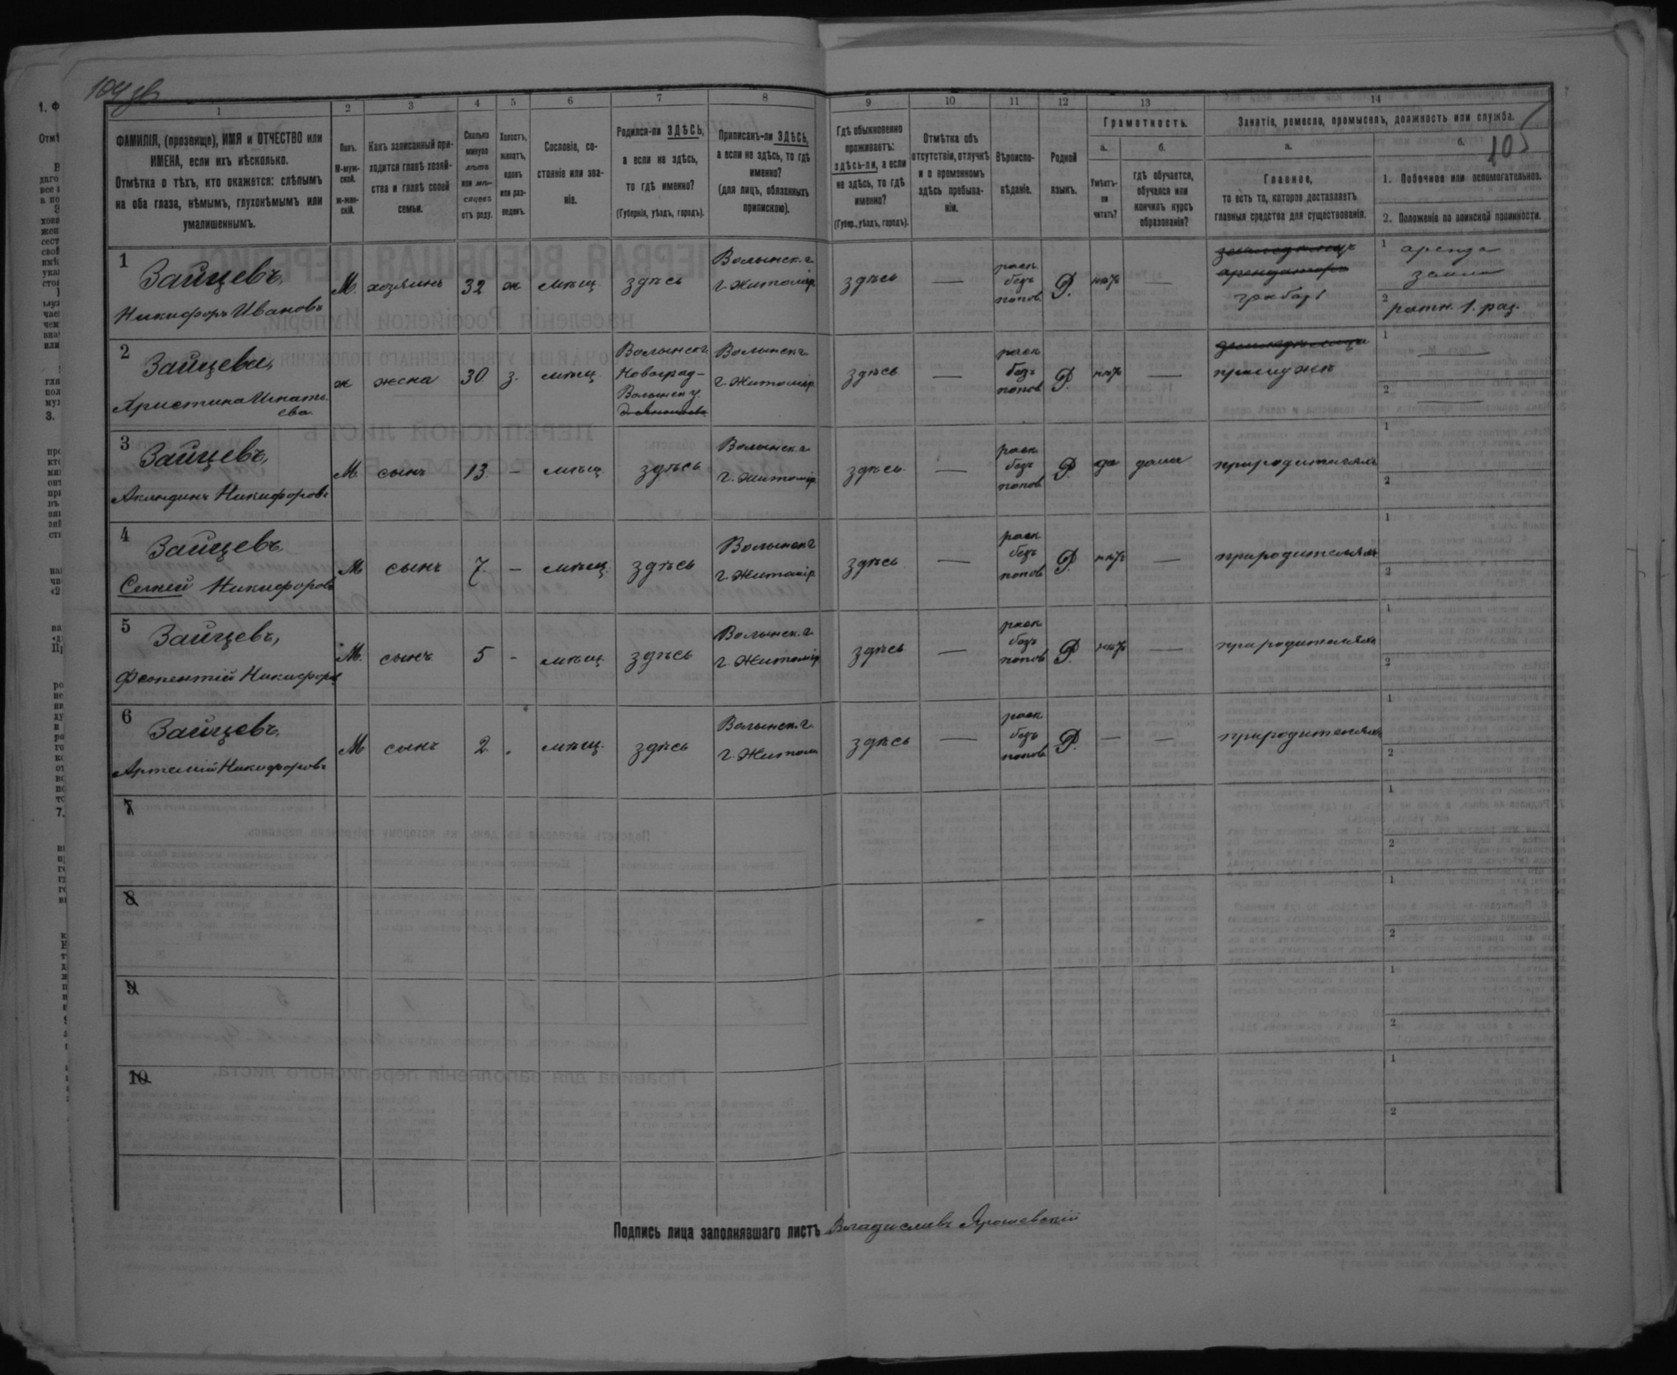 104 об
105
1 2 3 4 5 6 7 8 9 10 11 12 13 14
ФАМИЛІЯ, (прозвище), ИМЯ и ОТЧЕСТВО или
ИМЕНА, если ихъ нѣсколько.
Отмѣтка о тѣхъ, кто окажется: слѣпымъ
на оба глаза, нѣмымъ, глухонѣмымъ или
умалишеннымъ.
Полъ.
М-муж-
ской.
ж-жен-
скій.
Какъ записанный при-
ходится главѣ хозяй-
ства и главѣ своей
семьи.
Сколько
минуло
лѣтъ
или мѣ-
сяцевъ
отъ роду.
Холостъ,
женатъ,
вдовъ
или раз-
веденъ.
Сословіе, со-
стояніе или зва-
ніе.
Родился-ли ЗДѢСЬ,
а если не здѣсь,
то гдѣ именно?
(Губернія, уѣздъ, городъ).
Приписанъ-ли ЗДѢСЬ,
а если не здѣсь, то гдѣ
именно?
(для лицъ, обязанныхъ
припискою).
Гдѣ обыкновенно
проживаетъ:
здѣсь-ли, а если
не здѣсь, то гдѣ
именно?
(Губер., уѣздъ, городъ).
Отмѣтка объ
отсутствіи, отлучкѣ
и о временномъ
здѣсь пребыва-
ніи.
Вѣроиспо-
вѣданіе.
Родной
языкъ.
Грамотность.
а.
Умѣетъ-
ли
читать?
б.
гдѣ обучается,
обучался или
кончилъ курсъ
образованія?
Занятіе, ремесло, промыселъ, должность или служба.
а.
Главное,
то есть то, которое доставляетъ
главныя средства для существованія.
б.
1. Побочное или вспомогательное.
2. Положеніе по воинской повинности.
1 Зайцевъ
Никифоръ Ивановъ
М. хозяинъ 32 ж мѣщ. здѣсь
Волынск. г.
г. Житомір
здѣсь —
раск.
безъ
попов
Р. нѣтъ —
1 аренда
земли
2 ратн. 1. раз.
2 Зайцева,
Христина Игнать
ева
ж жена 30 з. мѣщ
Волынск г.
Новоград-
Волынск у.
Волынск г
г. Житомір.
здѣсь —
раск
безъ
попов
Р. нѣтъ —
при мужѣ
1 —
2 —
3 Зайцевъ,
Акиндинъ Никифоровъ
М. сынъ 13 - мѣщ здѣсь
Волынск. г
г. Житомір
здѣсь —
раск
безъ
попов
Р. да дома
при родителяхъ
1
2
4 Зайцевъ
Никифоровъ
М сынъ 7 - мѣщ. здѣсь
Волынск г
г. Житомір
здѣсь —
раск
безъ
попов
Р. нѣтъ —
при родителяхъ
1
2
5 Зайцевъ,
Никифоров
М. сынъ 5 - мѣщ здѣсь
Волынск. г.
г. Житомір
здѣсь —
раск
безъ
попов
Р. нѣтъ —
при родителяхъ
1
2
6 Зайцевъ,
Артемій Никифоровъ
М сынъ 2 . мѣщ. здѣсь
Волынск. г.
г. Житом
здѣсь —
раск
безъ
попов
Р. — —
при родителяхъ
1
2
7
1
2
8
1
2
9
1
2
10
1
2
Подпись лица заполнявшаго листъ Владиславъ Ярошевскій